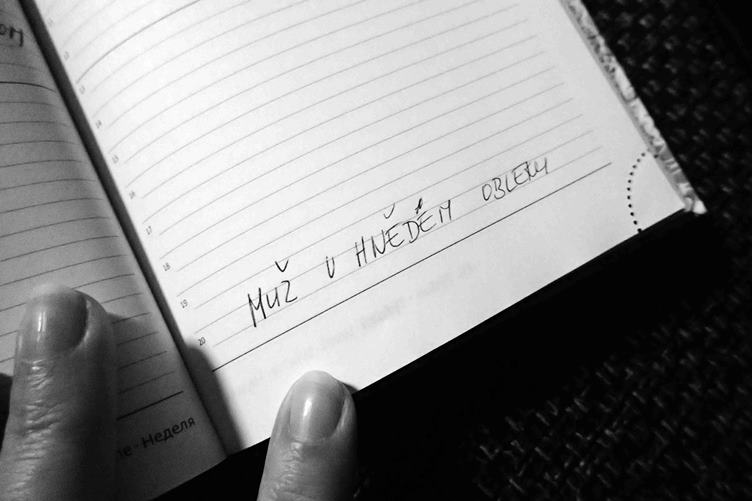 12
13
14
15
16
17
18
19
20
MUŽ V HNĚDÉM OBLEKU
· Неделя